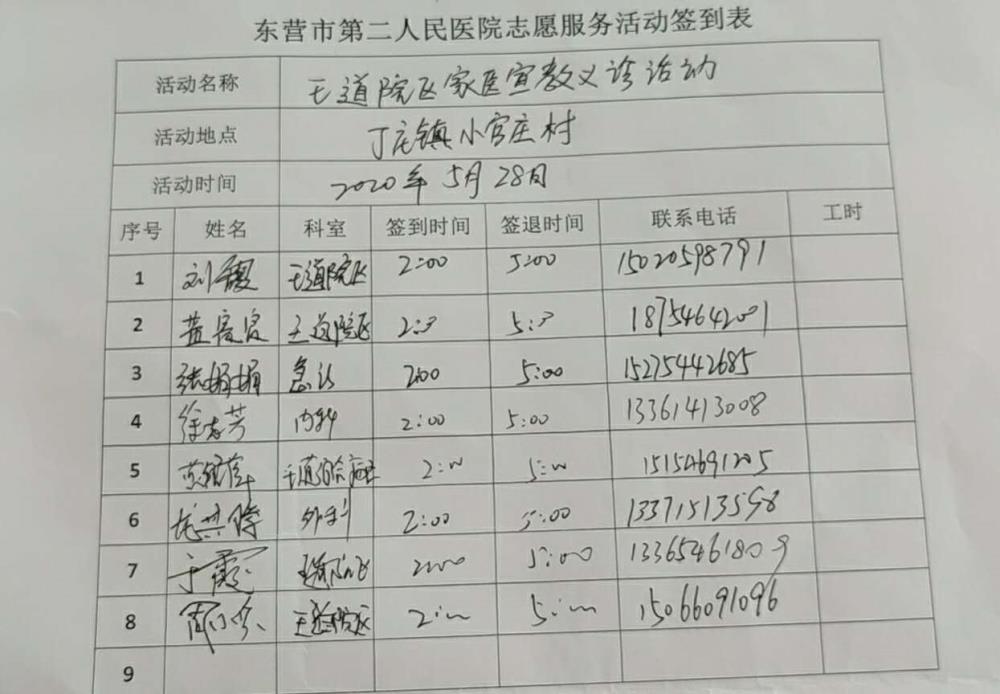 东营市第二人民医院志愿服务活动签到表
活动名称 王道院区家医宣教义诊活动
活动地点 丁庄镇小官庄村
活动时间 2020年5月28日
序号 姓名 科室 签到时间 签退时间 联系电话 工时
1 刘霞 王道院区 2:00 5:00 15020598791
2 王道院区 2:00 5:00 18754642001
3 张娟娟 急诊 2:00 5:00 15275442685
4 徐志芳 内科 2:00 5:00 13361413008
5 2:00 5:00 15154691205
6 外科 2:00 5:00 13371513598
7 于霞 王道院区 2:00 5:00 13365461809
8 王道院区 2:00 5:00 15066091096
9